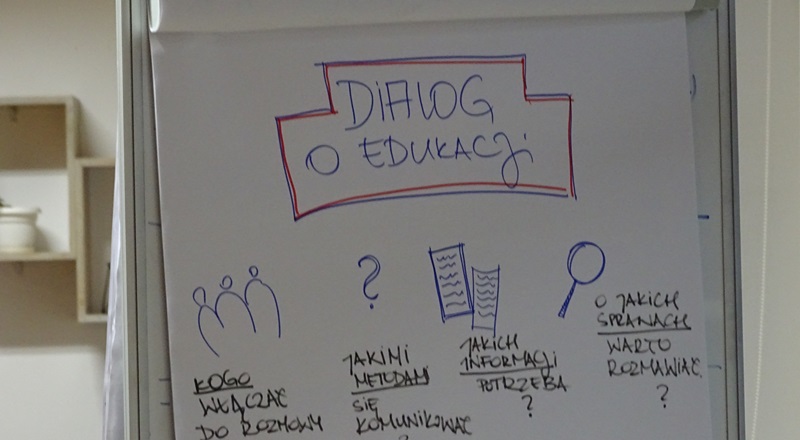 DIALOG
O EDUKACJI
?
KOGO
WŁĄCZAĆ
DO ROZMOWY
JAKIMI
METODAMI
SIĘ
KOMUNIKOWAĆ
?
JAKICH
INFORMACJI
POTRZEBA
?
O JAKICH
SPRAWACH
WARTO
ROZMAWIAĆ
?